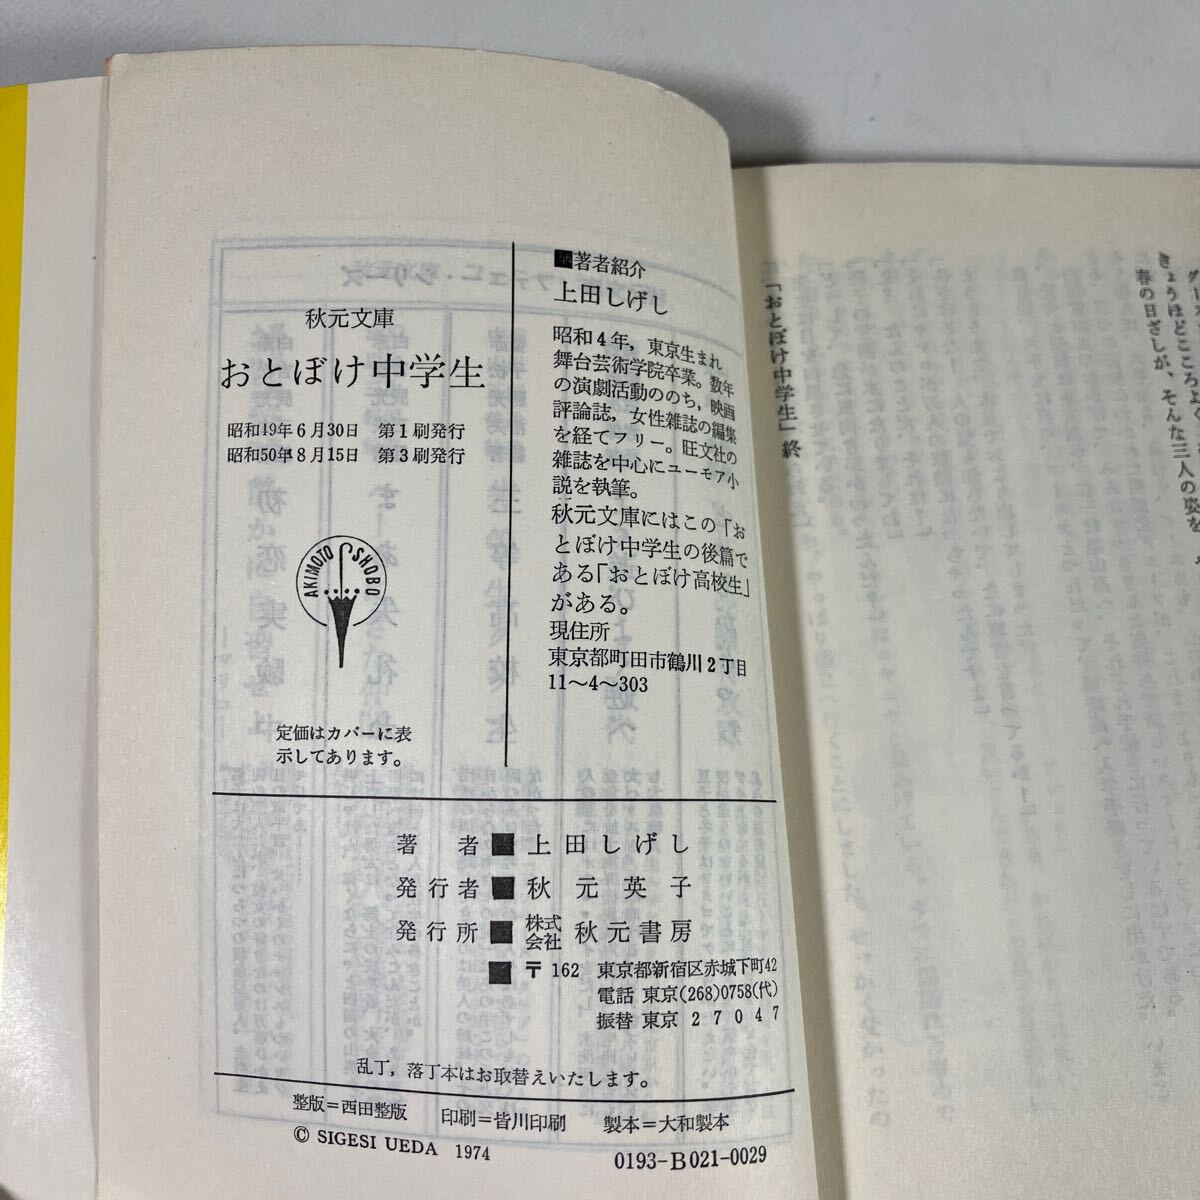 ■著者紹介
上田しげし
昭和4年，東京生まれ
舞台芸術学院卒業。数年
の演劇活動ののち，映画
評論誌，女性雑誌の編集
を経てフリー。旺文社の
雑誌を中心にユーモア小
説を執筆。
秋元文庫にはこの「お
とぼけ中学生の後篇で
ある「おとぼけ高校生」
がある。
現住所
東京都町田市鶴川2丁目
11〜4〜303
秋元文庫
おとぼけ中学生
昭和49年6月30日 第1刷発行
昭和50年8月15日 第3刷発行
AKIMOTO SHOBO
定価はカバーに表
示してあります。
著者■上田しげし
発行者■秋元英子
発行所■株式会社 秋元書房
■〒162 東京都新宿区赤城下町42
電話 東京(268)0758(代)
振替 東京 27047
乱丁，落丁本はお取替えいたします。
整版＝西田整版 印刷＝皆川印刷 製本＝大和製本
© SIGESI UEDA 1974
0193-B021-0029
きょうほどこころよ
春の日ざしが、そんな三人の姿を
「おとぼけ中学生」終